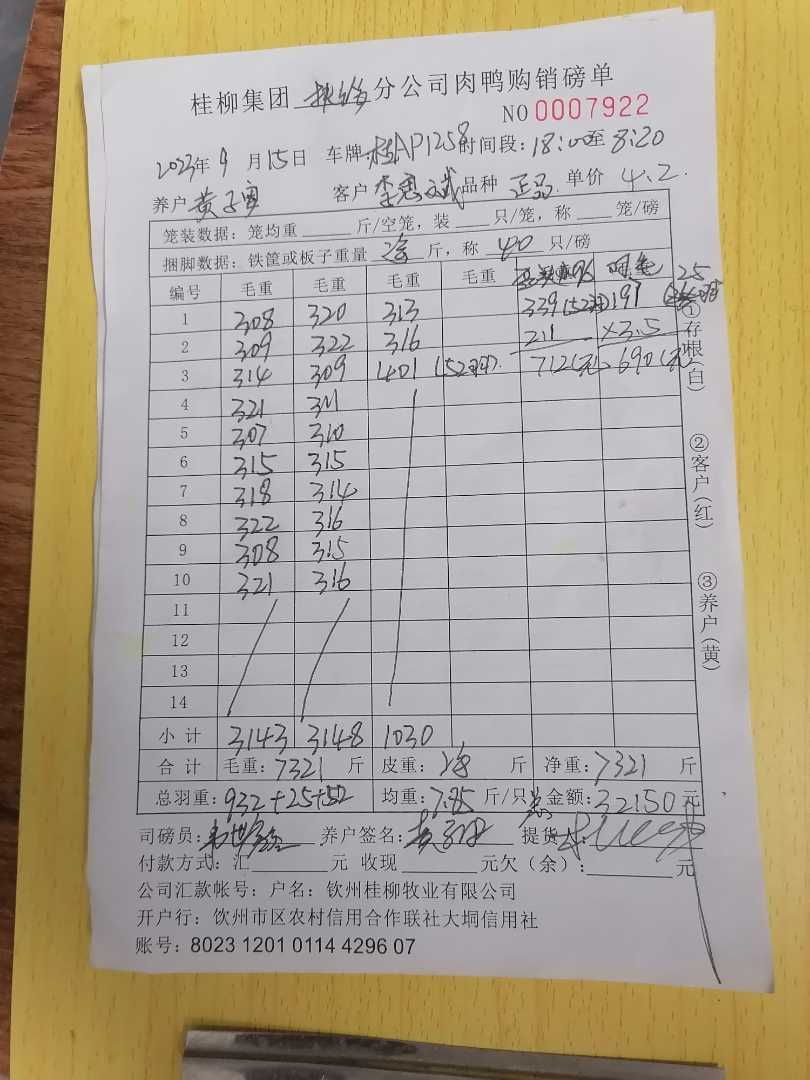 桂柳集团 分公司肉鸭购销磅单
NO 0007922
2023年9月15日 车牌:桂AP1258 时间段:18:00至8:20
养户 黄子勇 客户 李惠斌 品种 正品 单价 4.2
笼装数据:笼均重 斤/空笼,装 只/笼,称 笼/磅
捆脚数据:铁筐或板子重量 斤,称 40 只/磅
编号 毛重 毛重 毛重 毛重 25
1 308 320 313 339(52羽) 197
2 309 322 316 211 ×3.5
3 314 309 401 (52羽). 712(元) 690(元)
4 321 311
5 307 310
6 315 315
7 318 314
8 322 316
9 308 315
10 321 316
11
12
13
14
小计 3143 3148 1030
合计 毛重:7321 斤 皮重: 斤 净重:7321 斤
总羽重:932+25+52 均重:7.85 斤/只 总金额:32150元
司磅员: 养户签名:黄子勇 提货人:
付款方式:汇 元 收现 元欠(余): 元
公司汇款帐号:户名:钦州桂柳牧业有限公司
开户行:钦州市区农村信用合作联社大垌信用社
账号:8023 1201 0114 4296 07
①存根(白)
②客户(红)
③养户(黄)